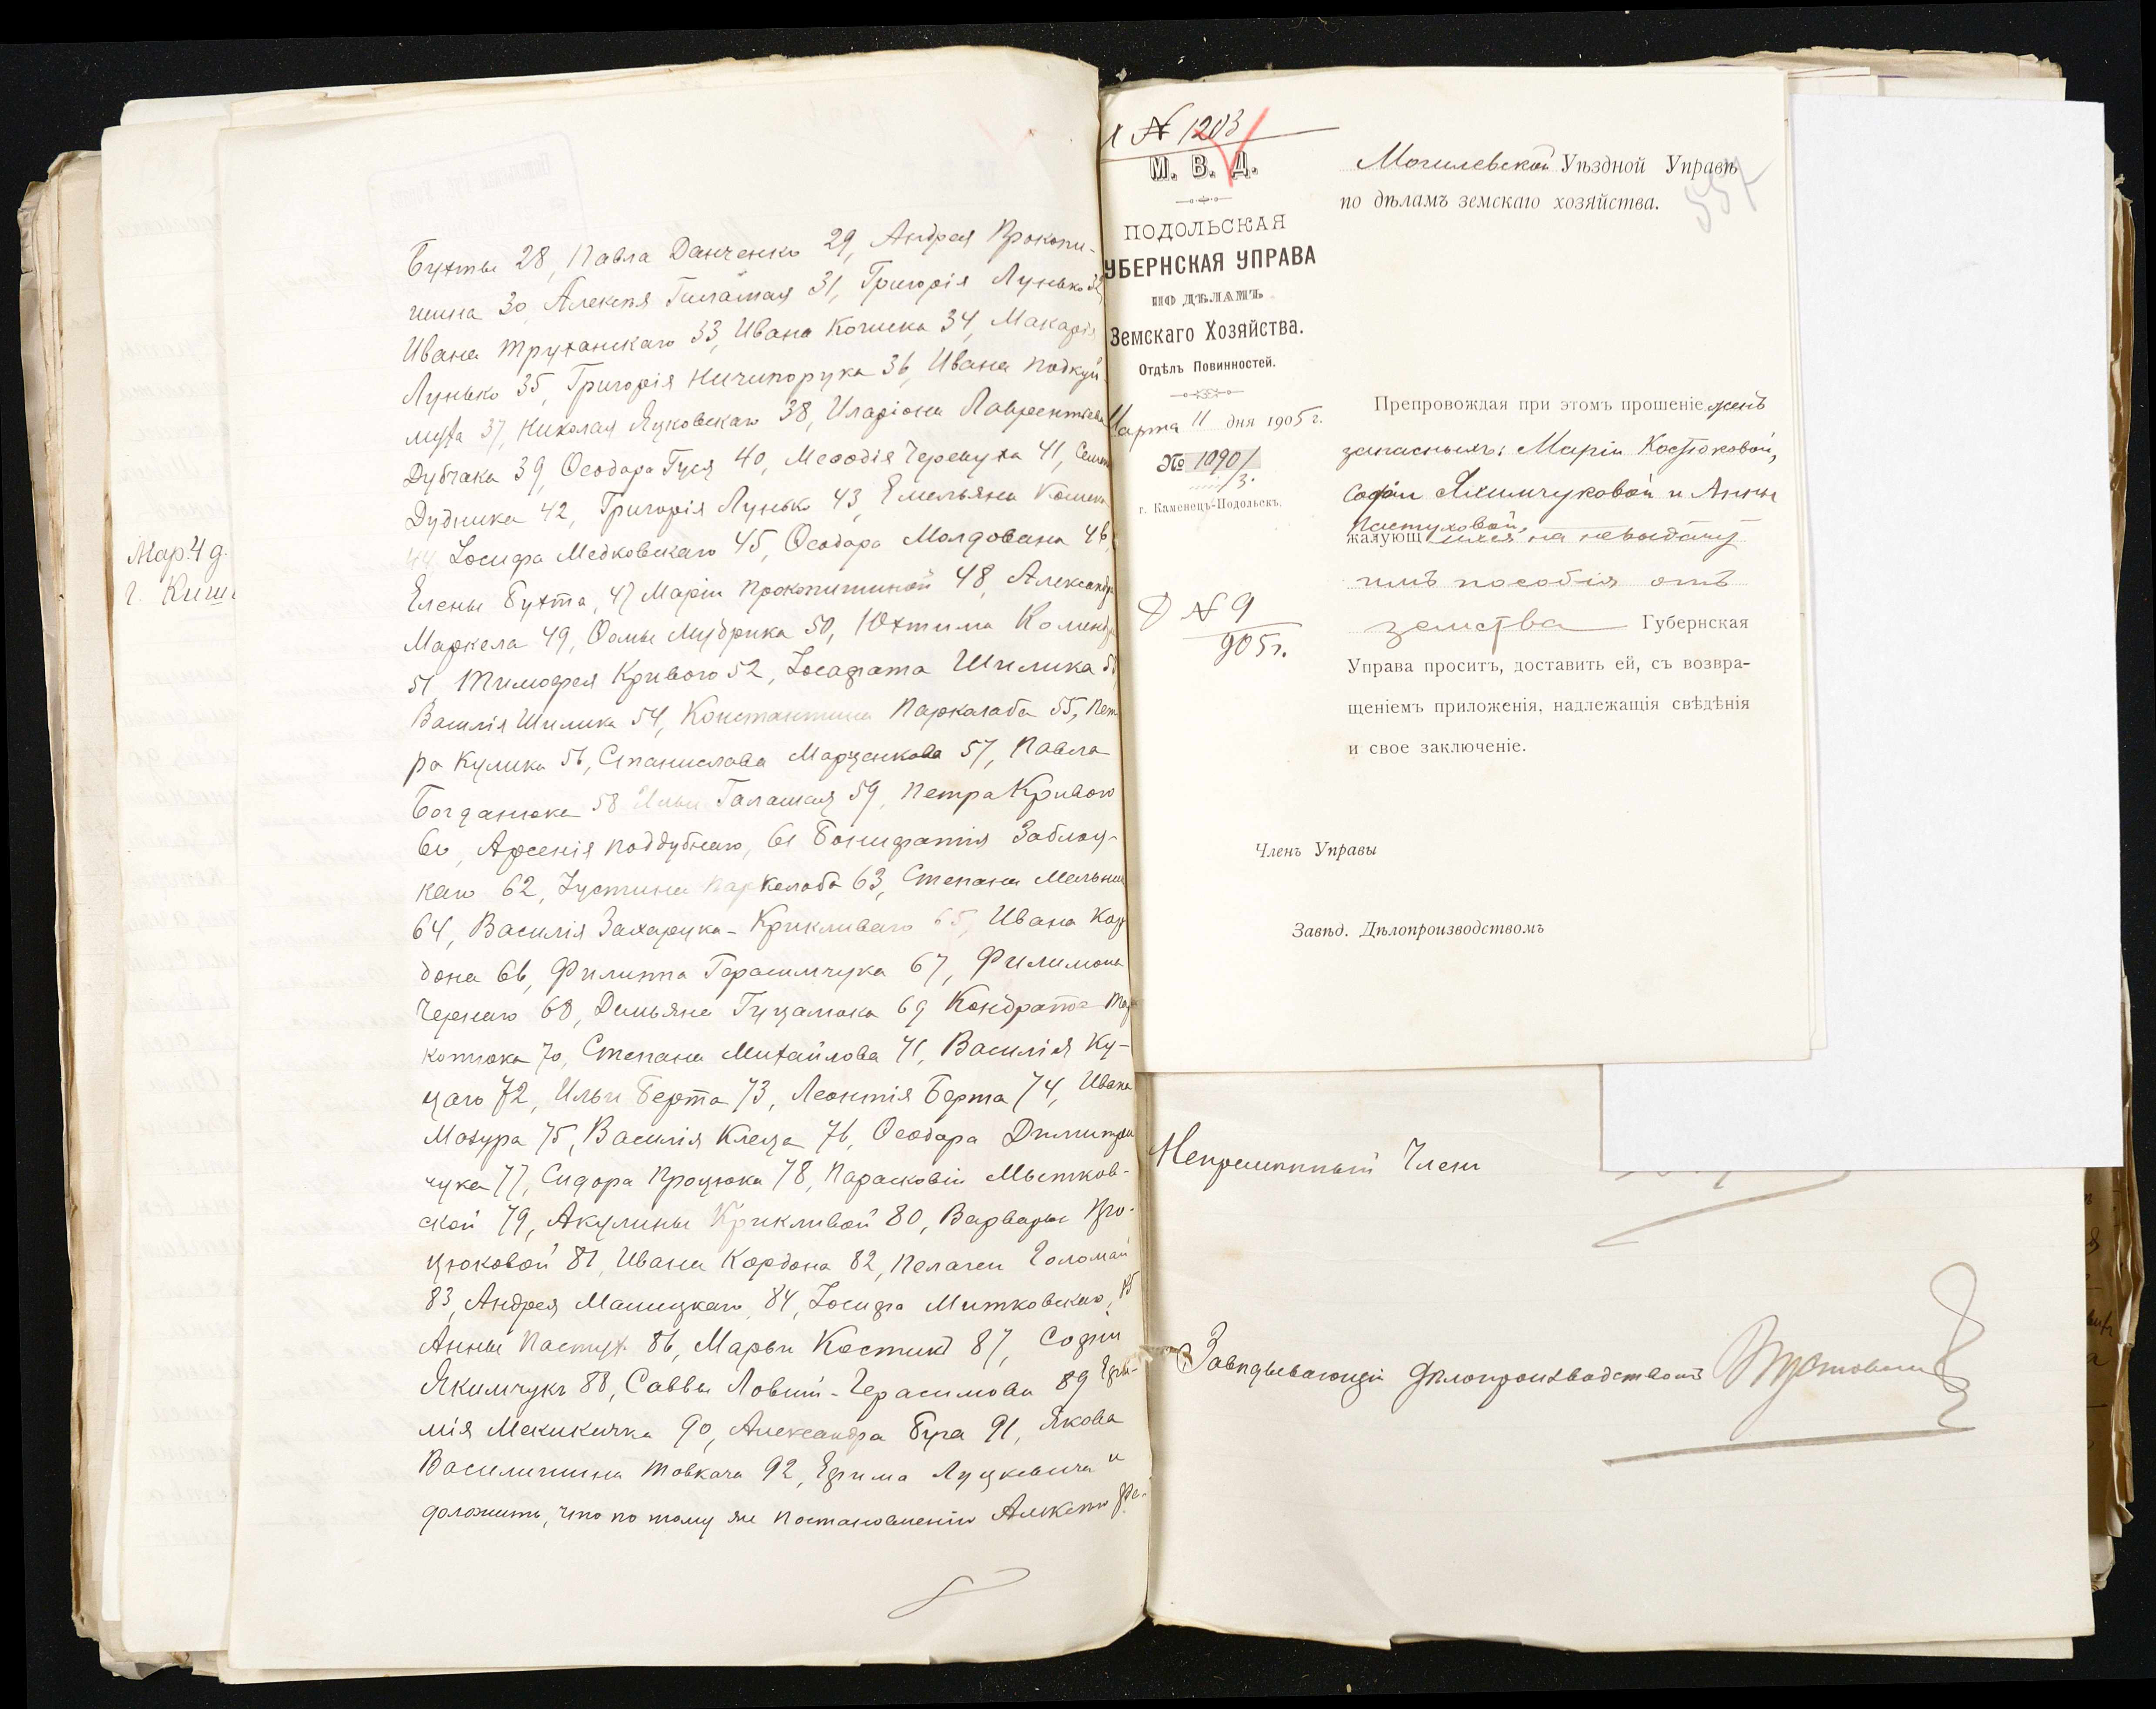 Мар. 4 д.
г. Киши
Бухты 28, Павла Данченко 29, Андрея Прокопи-
шина 30, Алексѣя Галашая 31, Григорія Лунько 32,
Ивана Труханскаго 33, Ивана Кошека 34, Макарія
Лунько 35, Григорія Ничипорука 36, Ивана Подкуй
муха 37, Николая Яцковскаго 38, Иларіона Лаврентьева
Дубчака 39, Ѳеодора Гуся 40, Меѳодія Черепуха 41, Семена
Дудника 42, Григорія Лунько 43, Емельяна
44, Іосифа Медковскаго 45, Ѳеодора Молдована 46,
Елены Бухта, 47 Маріи Прокопишиной 48, Александра
Маркела 49, Ѳомы Мудрика 50, Юхтима
51, Тимофея Кривого 52, Іосафата Шилика 53
Василія Шилика 54, Константина Паркалаба 55, Пет
ра Кулика 56, Станислава Марценкова 57, Павла
Богданюка 58 Ильи Галашая 59, Петра Кривого
60, Арсенія Поддубнаго, 61 Бонифатія Заблоц-
каго 62, Іустина Паркалаба 63, Степана Мельника
64, Василія Захарука-Крикливаго 65, Ивана Кор
дона 66, Филиппа Герасимчука 67, Филимона
Чернаго 68, Демьяна Гуцалюка 69 Кондрата
котюка 70, Степана Михайлова 71, Василія Ку-
цаго 72, Ильи Берта 73, Леонтія Берта 74, Ивана
Мазура 75, Василія Клеца 76, Ѳеодора Димитри
чука 77, Сидора Процюка 78, Парасковіи Мытков-
ской 79, Акулины Крикливой 80, Варвары Про-
цюковой 81, Ивана Кордона 82, Пелагеи Голомай
83, Андрея Маницкаго, 84, Іосифа Митковскаго, 85
Анны Пастух 86, Марьи Костюк 87, Софіи
Якимчукъ 88, Саввы Ловыч-Герасимова 89 Ефи-
мія 90, Александра Бура 91, Якова
Василишина Товкача 92, Ефима Луцкевича и
доложить, что по тому же постановленію Алексѣю
№ 1203
М. В. Д.
ПОДОЛЬСКАЯ
УБЕРНСКАЯ УПРАВА
ПО ДѢЛАМЪ
Земскаго Хозяйства.
Отдѣлъ Повинностей.
Марта 11 дня 1905 г.
№ 1090/
/3.
г. Каменецъ-Подольскъ.
Д № 9
905 г.
Могилевской Уѣздной Управѣ
по дѣламъ земскаго хозяйства.
557
Препровождая при этомъ прошеніе женъ
запасныхъ: Маріи Костюковой,
Софіи Якимчуковой и Анны
Пастуховой,
жалующихся на невыдачу
имъ пособія отъ
земства Губернская
Управа проситъ, доставить ей, съ возвра-
щеніемъ приложенія, надлежащія свѣдѣнія
и свое заключеніе.
Членъ Управы
Завѣд. Дѣлопроизводствомъ
Непремѣнный Членъ
Завѣдывающій Дѣлопроизводствомъ